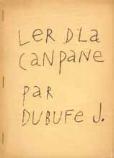 LER DLA
CANPANE
PAR
DUBUFE J.